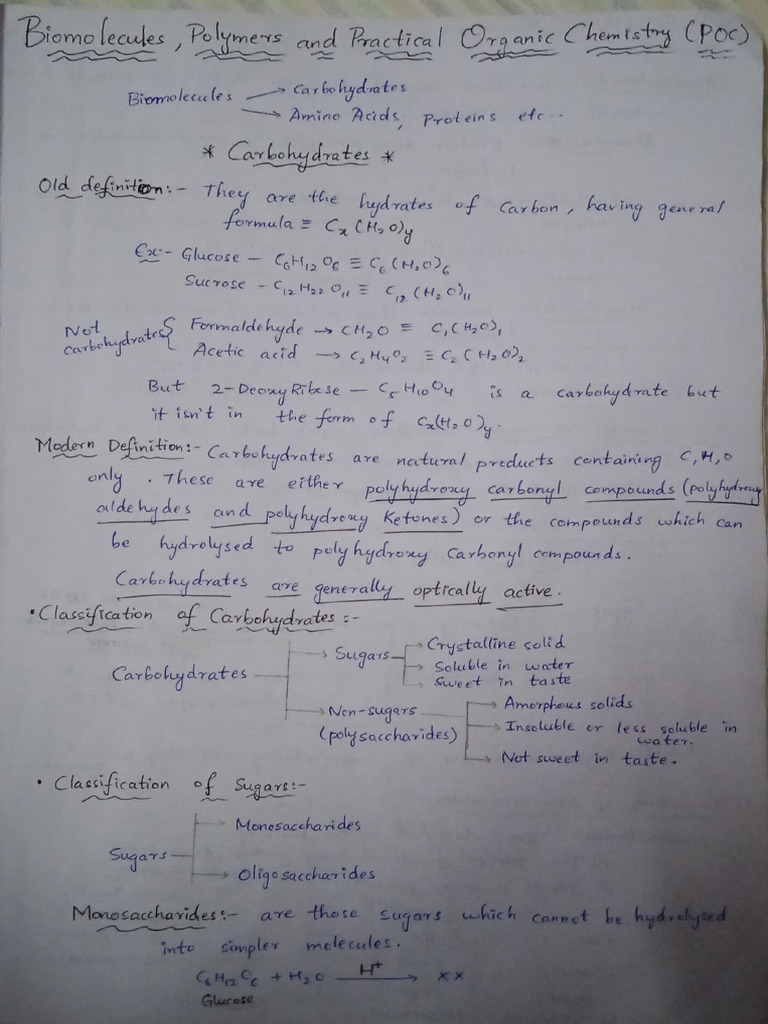 Biomolecules, Polymers and Practical Organic Chemistry (POC)
Biomolecules → Carbohydrates
→ Amino Acids, Proteins etc...
* Carbohydrates *
Old definition:- They are the hydrates of carbon, having general
formula ≡ Cx(H₂O)y
Ex:- Glucose — C₆H₁₂O₆ ≡ C₆(H₂O)₆
Sucrose - C₁₂H₂₂O₁₁ ≡ C₁₂(H₂O)₁₁
Not carbohydrates { Formaldehyde → CH₂O ≡ C₁(H₂O)₁
Acetic acid → C₂H₄O₂ ≡ C₂(H₂O)₂
But 2-DeoxyRibose — C₅H₁₀O₄ is a carbohydrate but
it isn't in the form of Cx(H₂O)y.
Modern Definition:- Carbohydrates are natural products containing C,H,O
only. These are either polyhydroxy carbonyl compounds (polyhydroxy
aldehydes and polyhydroxy Ketones) or the compounds which can
be hydrolysed to polyhydroxy Carbonyl compounds.
Carbohydrates are generally optically active.
• Classification of Carbohydrates:-
Carbohydrates → Sugars → Crystalline solid
→ Soluble in water
→ Sweet in taste
→ Non-sugars (polysaccharides) → Amorphous solids
→ Insoluble or less soluble in
water.
→ Not sweet in taste.
• Classification of Sugars:-
Sugars → Monosaccharides
→ Oligosaccharides
Monosaccharides:- are those sugars which cannot be hydrolysed
into simpler molecules.
C₆H₁₂O₆ + H₂O —H⁺→ ××
Glucose